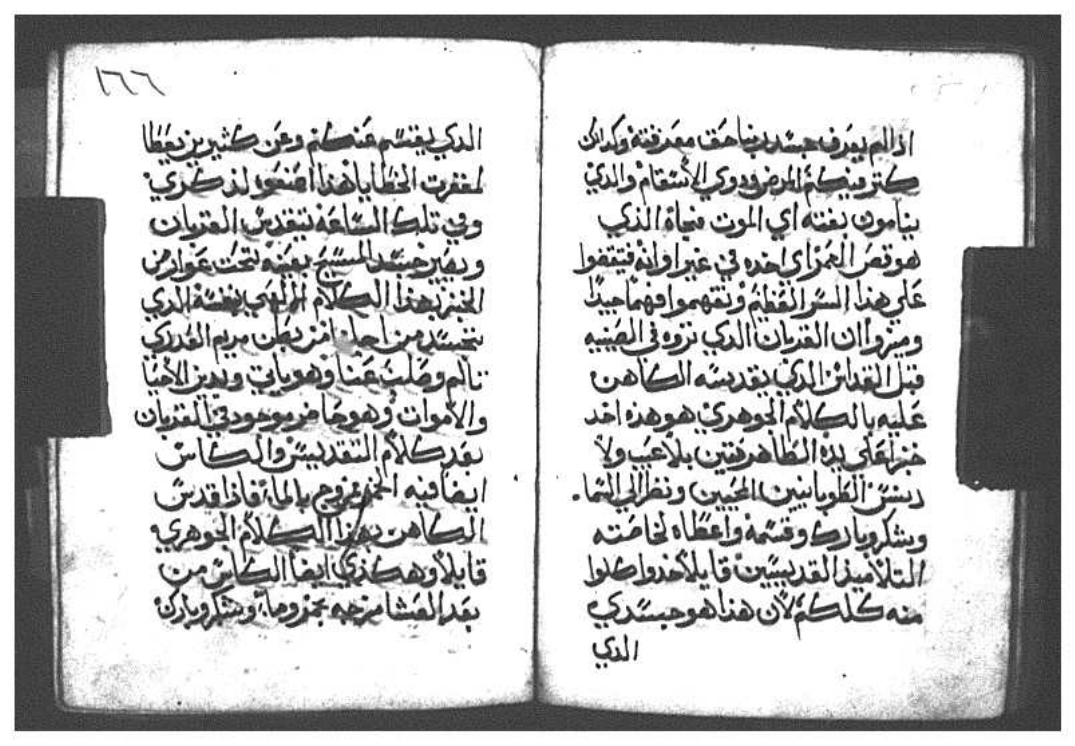 اذا لم يعرف جسد ربنا حق معرفته وكذلك
كتر فيكم المرض ودوي الأسقام والدي
ينامون بغته اي الموت فجاة الذي
هو قص العمر اي اخده في غير اوانه فتيقفوا
على هذا السر العظيم وتفهموا فهما جيدا
وميزوا ان القربان الدي تروه في الصينيه
قبل القداس الدي يقدسه الكاهن
عليه بالكلام الجوهري هو هذه اخد
خبزا على يديه الطاهرتين بلا عيب ولا
دنس الطوبانيين المحيين ونظر الي السما
وشكر وبارك وقسمه واعطاه لخاصته
التلاميذ القديسين قايلا خدوا كلوا
منه كلكم لان هذا هو جسدي
الدي
١٦٦
الدي يقسم عنكم وعن كثيرين يعطا
لمغفرت الخطايا هذا اصنعوه لذكري
وفي تلك الساعه يتقدس القربان
ويصير جسد المسيح بعينه تحت عوارض
الخبز بهذا الكلام الالهي بنفسه الدي
تجسد من اجلنا من بطن مريم العدري
تالم وصلب عنا وهو ياتي ويدين الاحيا
والأموات وهو حاضر موجود في القربان
بعد كلام التقديس والكاس
ايضا فيه الخمر ممزوج بالماء فاذا قدس
الكاهن بهذا الكلام الجوهري
قايلا وهكذي ايضا الكاس من
بعد العشا مزجه خمر وماء وشكر وبارك